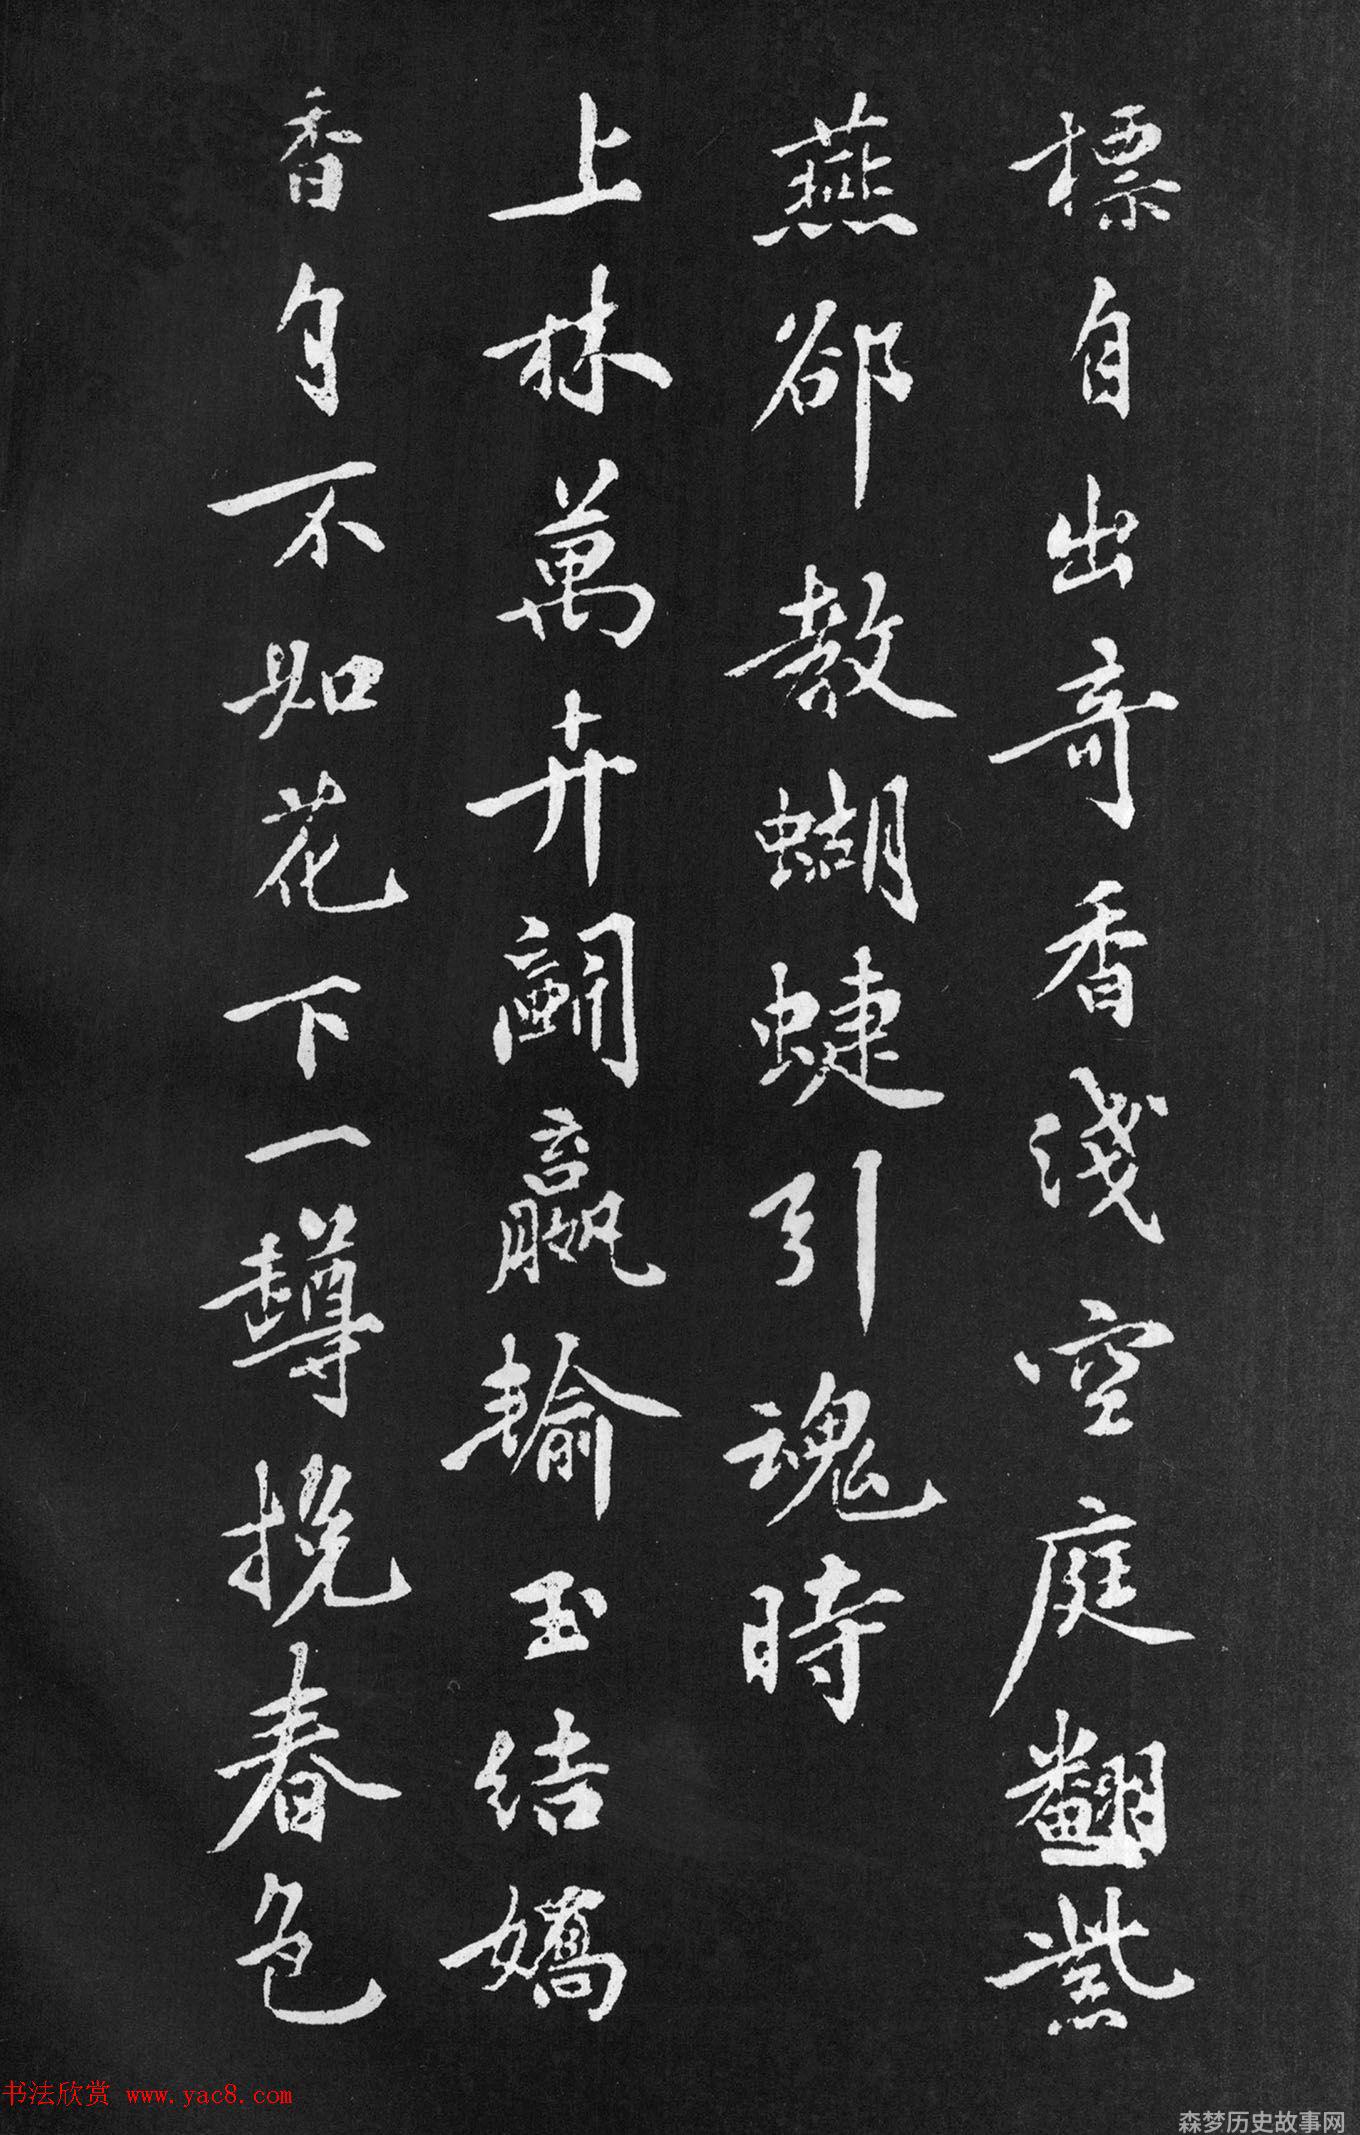 標自出奇香淺空庭翻紫
燕郤教蝴蜨引魂時
上林萬卉鬭贏輸玉結嬌
香自不如花下一罇挽春色
书法欣赏 www.yac8.com
森梦历史故事网